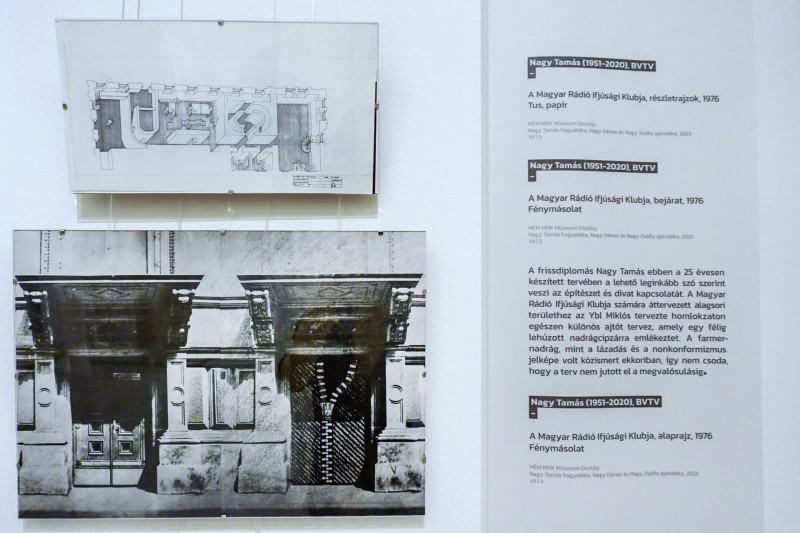 Nagy Tamás (1951-2020), BVTV
–
A Magyar Rádió Ifjúsági Klubja, részletrajzok, 1976
Tus, papír
MÉM MDK Múzeumi Osztály
Nagy Tamás hagyatéka, Nagy Dénes és Nagy Zsófia ajándéka, 2023
Nagy Tamás (1951-2020), BVTV
–
A Magyar Rádió Ifjúsági Klubja, bejárat, 1976
Fénymásolat
MÉM MDK Múzeumi Osztály
Nagy Tamás hagyatéka, Nagy Dénes és Nagy Zsófia ajándéka, 2023
A frissdiplomás Nagy Tamás ebben a 25 évesen
készített tervében a lehető leginkább szó szerint
veszi az építészet és divat kapcsolatát. A Magyar
Rádió Ifjúsági Klubja számára áttervezett alagsori
területhez az Ybl Miklós tervezte homlokzaton
egészen különös ajtót tervez, amely egy félig
lehúzott nadrágcipzárra emlékeztet. A farmer-
nadrág, mint a lázadás és a nonkonformizmus
jelképe volt közismert ekkoriban, így nem csoda,
hogy a terv nem jutott el a megvalósulásig.
Nagy Tamás (1951-2020), BVTV
–
A Magyar Rádió Ifjúsági Klubja, alaprajz, 1976
Fénymásolat
MÉM MDK Múzeumi Osztály
Nagy Tamás hagyatéka, Nagy Dénes és Nagy Zsófia ajándéka, 2023